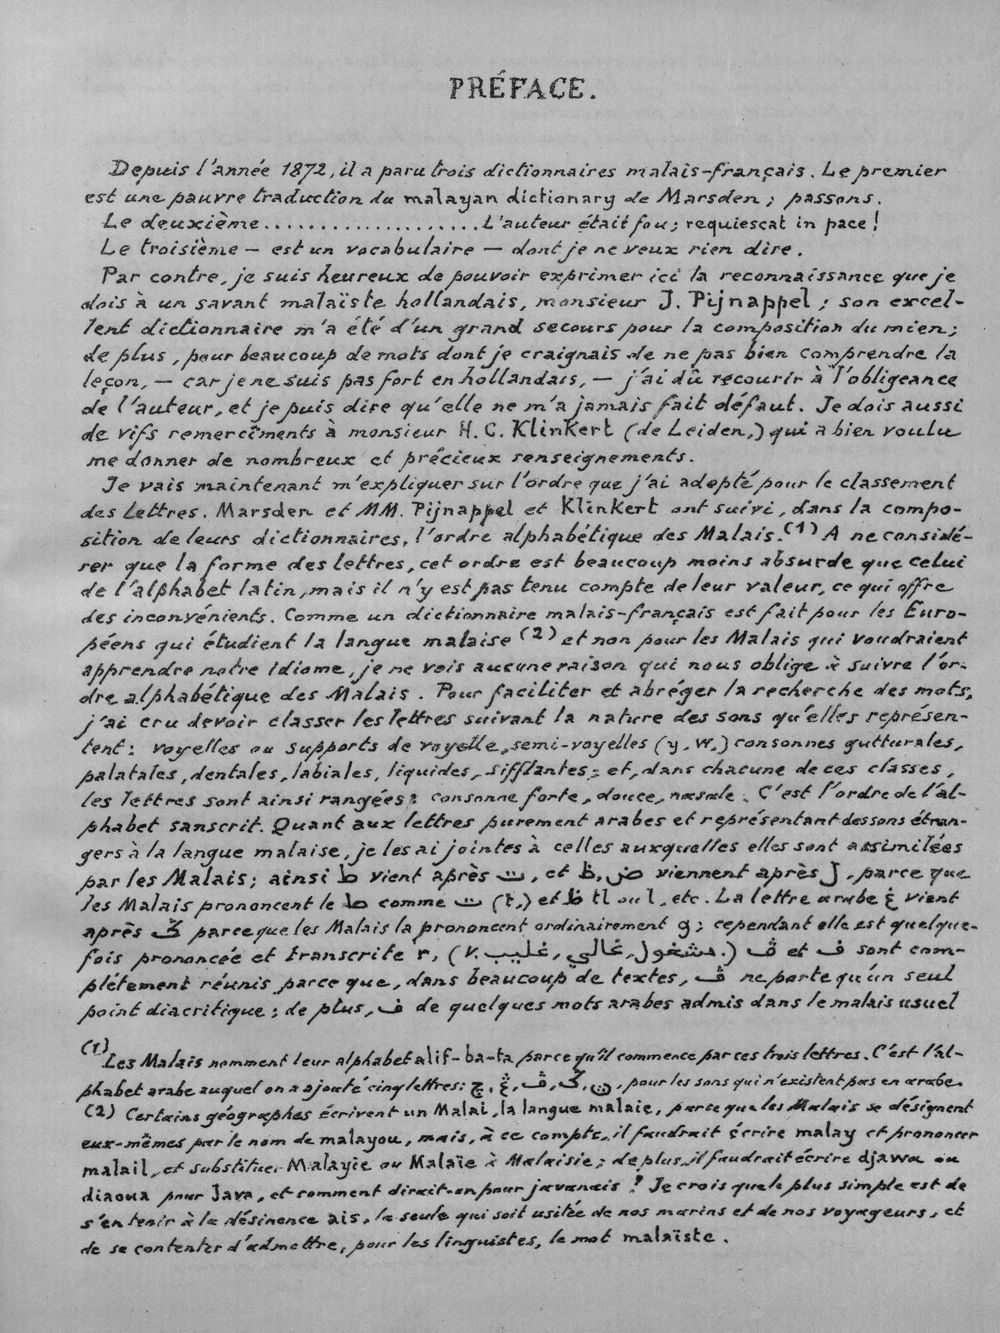 PRÉFACE.
Depuis l'année 1872, il a paru trois dictionnaires malais-français. Le premier
est une pauvre traduction du malayan dictionary de Marsden ; passons.
Le deuxième.................... L'auteur était fou ; requiescat in pace !
Le troisième — est un vocabulaire — dont je ne veux rien dire.
Par contre, je suis heureux de pouvoir exprimer ici la reconnaissance que je
dois à un savant malaïste hollandais, monsieur J. Pijnappel ; son excel-
lent dictionnaire m'a été d'un grand secours pour la composition du mien ;
de plus, pour beaucoup de mots dont je craignais de ne pas bien comprendre la
leçon, — car je ne suis pas fort en hollandais, — j'ai dû recourir à l'obligeance
de l'auteur, et je puis dire qu'elle ne m'a jamais fait défaut. Je dois aussi
de vifs remercîments à monsieur H. C. Klinkert (de Leiden,) qui a bien voulu
me donner de nombreux et précieux renseignements.
Je vais maintenant m'expliquer sur l'ordre que j'ai adopté pour le classement
des lettres. Marsden et MM. Pijnappel et Klinkert ont suivi, dans la compo-
sition de leurs dictionnaires, l'ordre alphabétique des Malais.(1) A ne considé-
rer que la forme des lettres, cet ordre est beaucoup moins absurde que celui
de l'alphabet latin, mais il n'y est pas tenu compte de leur valeur, ce qui offre
des inconvénients. Comme un dictionnaire malais-français est fait pour les Euro-
péens qui étudient la langue malaise (2) et non pour les Malais qui voudraient
apprendre notre idiome, je ne vois aucune raison qui nous oblige à suivre l'or-
dre alphabétique des Malais. Pour faciliter et abréger la recherche des mots,
j'ai cru devoir classer les lettres suivant la nature des sons qu'elles représen-
tent : voyelles ou supports de voyelle, semi-voyelles (y, w,) consonnes gutturales,
palatales, dentales, labiales, liquides, sifflantes ; et, dans chacune de ces classes,
les lettres sont ainsi rangées : consonne forte, douce, nasale. C'est l'ordre de l'al-
phabet sanscrit. Quant aux lettres purement arabes et représentant des sons étran-
gers à la langue malaise, je les ai jointes à celles auxquelles elles sont assimilées
par les Malais ; ainsi ط vient après ت, et ض, ظ viennent après ل, parce que
les Malais prononcent le ط comme ت (t,) et ظ tl ou l, etc. La lettre arabe غ vient
après ڬ parce que les Malais la prononcent ordinairement g ; cependant elle est quelque-
fois prononcée et transcrite r, (v. غليب, غالي, مشغول.) ڤ et ف sont com-
plètement réunis parce que, dans beaucoup de textes, ڤ ne porte qu'un seul
point diacritique ; de plus, ف de quelques mots arabes admis dans le malais usuel
(1) Les Malais nomment leur alphabet alif-ba-ta parce qu'il commence par ces trois lettres. C'est l'al-
phabet arabe auquel on a ajouté cinq lettres : چ, ڠ, ڤ, ڬ, ڽ, pour les sons qui n'existent pas en arabe.
(2) Certains géographes écrivent un Malai, la langue malaie, parce que les Malais se désignent
eux-mêmes par le nom de malayou, mais, à ce compte, il faudrait écrire malay et prononcer
malail, et substituer Malayie ou Malaïe à Malaisie ; de plus, il faudrait écrire djawa ou
diaoua pour Java, et comment dirait-on pour javanais ? Je crois que le plus simple est de
s'en tenir à la désinence ais, la seule qui soit usitée de nos marins et de nos voyageurs, et
de se contenter d'admettre, pour les linguistes, le mot malaïste.